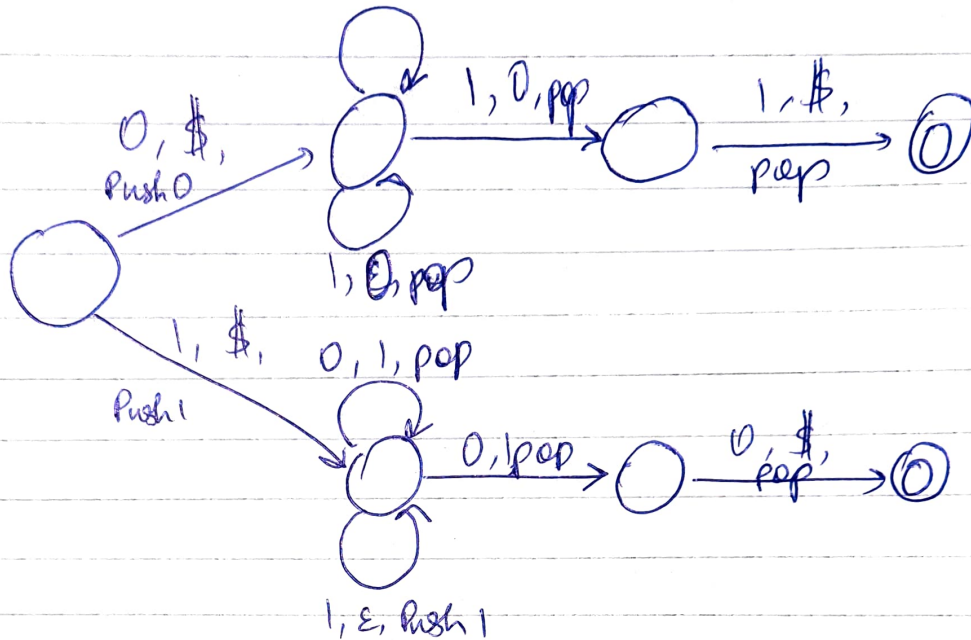 0, $,
Push 0
1, 0, pop
1, $,
pop
1, 0, pop
1, $,
Push 1
0, 1, pop
0, 1 pop
0, $,
pop
1, ε, Push 1